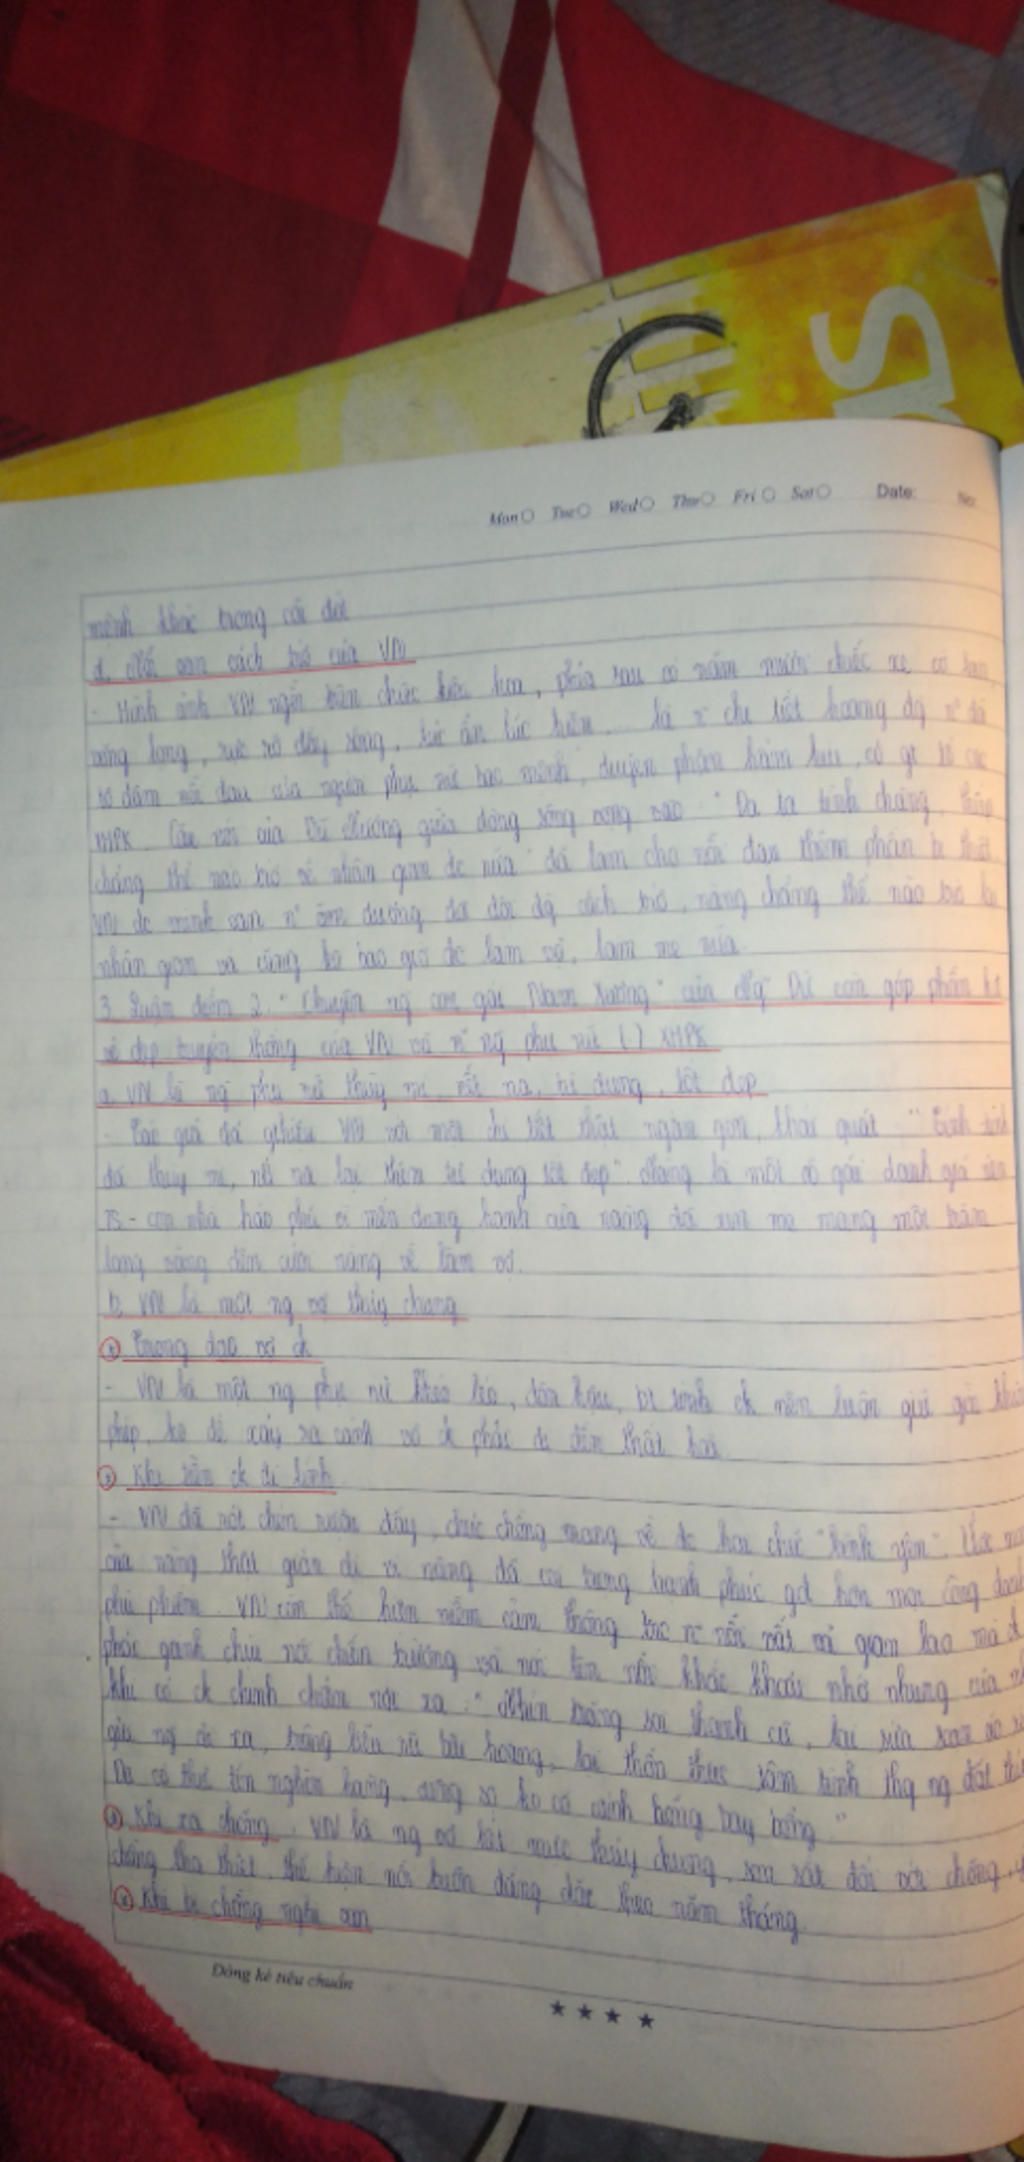 Mon Tue Wed Thu Fri Sat Date: No:
mình khác trong cõi đời
d. Nỗi oan cách trở của VN
- Hình ảnh VN ngồi trên chiếc kiệu hoa, phía sau có năm mươi chiếc xe cờ tán,
võng lọng, rực rỡ đầy sông, lúc ẩn lúc hiện... là chi tiết hoang đg
tô đậm nỗi đau của người phụ nữ bạc mệnh, duyên phận hẩm hiu, có gt tố cáo
XHPK. Câu nói của Vũ Nương giữa dòng sông vọng vào "Đa tạ tình chàng, thiếp
chẳng thể nào trở về nhân gian đc nữa" đã làm cho nỗi đau thêm phần bi thiết.
VN đc minh oan âm dương đã đôi đg cách trở, nàng chẳng thể nào trở lại
nhân gian và cũng ko bao giờ đc làm vợ, làm mẹ nữa.
3. Luận điểm 2. "Chuyện ng con gái Nam Xương" của Ng Dữ còn góp phần
vẻ đẹp truyền thống của VN và ng phụ nữ (.) XHPK
a. VN là ng phụ nữ thùy mị, nết na, tư dung, tốt đẹp
- Tác giả đã gthiệu VN với một chi tiết thật ngắn gọn, khái quát: "Tính tình
đã thùy mị, nết na lại thêm tư dung tốt đẹp". Nàng là một cô gái danh giá nên
TS - con nhà hào phú vì mến dung hạnh của nàng đã xin mẹ mang một trăm
lạng vàng đến cưới nàng về làm vợ.
b. VN là một ng vợ thủy chung
① Trong đạo vợ ck
- VN là một ng phụ nữ khéo léo, đôn hậu, bt tính ck nên luôn giữ gìn khuôn
phép, ko để xảy ra cảnh vợ ck phải đi đến thất hoà.
② Khi tiễn ck đi lính
- VN đã rót chén rượu đầy, chúc chồng mang về đc hai chữ "bình yên". Ước mơ
của nàng thật giản dị vì nàng đã coi trọng hạnh phúc gđ hơn mọi công danh
phù phiếm. VN còn thể hiện niềm cảm thông trc nỗi vất vả gian lao mà ck
phải gánh chịu nơi chiến trường và nói lên nỗi khắc khoải nhớ nhung của
khi có ck chinh chiến nơi xa: "Nhìn trăng soi thành cũ, lại sửa soạn áo rét
gửi ng ải xa, trông liễu rủ bãi hoang, lại thổn thức tâm tình thg ng đất thú.
Dù có thư tín nghìn hàng, cũng sợ ko có cánh hồng bay bổng."
③ Khi xa chồng. VN là ng vợ hết mực thủy chung, son sắt đối với chồng,
chồng tha thiết, thể hiện nỗi buồn đằng đẵng theo năm tháng.
④ Khi bị chồng nghi oan
Dòng kẻ tiêu chuẩn